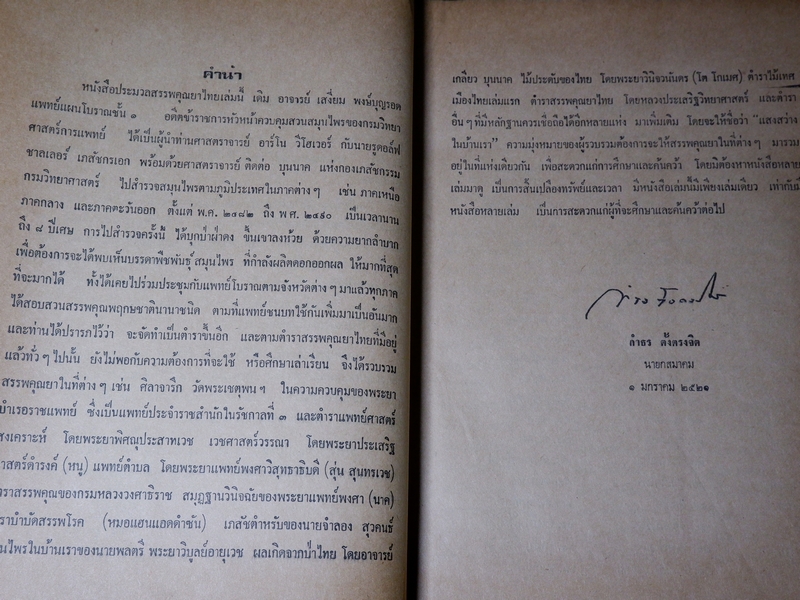 คำนำ
หนังสือประมวลสรรพคุณยาไทยเล่มนี้ เดิม อาจารย์ เสงี่ยม พงษ์บุญรอด
แพทย์แผนโบราณชั้น ๑ อดีตข้าราชการหัวหน้าควบคุมสวนสมุนไพรของกรมวิทยา
ศาสตร์การแพทย์ ได้เป็นผู้นำท่านศาสตราจารย์ อาร์โน วีโฮเวอร์ กับนายรูดอล์ฟ
ชาลเลอร์ เภสัชกรเอก พร้อมด้วยศาสตราจารย์ ติดต่อ บุนนาค แห่งกองเภสัชกรรม
กรมวิทยาศาสตร์ ไปสำรวจสมุนไพรตามภูมิประเทศในภาคต่าง ๆ เช่น ภาคเหนือ
ภาคกลาง และภาคตะวันออก ตั้งแต่ พ.ศ. ๒๔๘๒ ถึง พ.ศ. ๒๔๙๐ เป็นเวลานาน
ถึง ๘ ปีเศษ การไปสำรวจครั้งนี้ ได้บุกป่าฝ่าดง ขึ้นเขาลงห้วย ด้วยความยากลำบาก
เพื่อต้องการจะได้พบเห็นบรรดาพืชพันธุ์สมุนไพร ที่กำลังผลิตดอกออกผล ให้มากที่สุด
ที่จะมากได้ ทั้งได้เคยไปร่วมประชุมกับแพทย์โบราณตามจังหวัดต่าง ๆ มาแล้วทุกภาค
ได้สอบสวนสรรพคุณพฤกษชาตินานาชนิด ตามที่แพทย์ชนบทใช้กันเพิ่มมาเป็นอันมาก
และท่านได้ปรารภไว้ว่า จะจัดทำเป็นตำราขึ้นอีก และตามตำราสรรพคุณยาไทยที่มีอยู่
แล้วทั่ว ๆ ไปนั้น ยังไม่พอกับความต้องการที่จะใช้ หรือศึกษาเล่าเรียน จึงได้รวบรวม
สรรพคุณยาในที่ต่าง ๆ เช่น ศิลาจารึก วัดพระเชตุพน ฯ ในความควบคุมของพระยา
บำเรอราชแพทย์ ซึ่งเป็นแพทย์ประจำราชสำนักในรัชกาลที่ ๓ และตำราแพทย์ศาสตร์
สงเคราะห์ โดยพระยาพิศณุประสาทเวช เวชศาสตร์วรรณา โดยพระยาประเสริฐ
าสตร์ดำรงค์ (หนู) แพทย์ตำบล โดยพระยาแพทย์พงศาวิสุทธาธิบดี (สุ่น สุนทรเวช)
ราสรรพคุณของกรมหลวงวงศาธิราช สมุฏฐานวินิจฉัยของพระยาแพทย์พงศา (นาค)
ราบำบัดสรรพโรค (หมอแฮนแอดดำซัน) เภสัชตำหรับของนายจำลอง สุวคนธ์
นไพรในบ้านเราของนายพลตรี พระยาวิบูลย์อายุเวช ผลเกิดจากป่าไทย โดยอาจารย์
เกลียว บุนนาค ไม้ประดับของไทย โดยพระยาวินิจวนันดร (โต โกเมศ) ตำราไม้เทศ
เมืองไทยเล่มแรก ตำราสรรพคุณยาไทย โดยหลวงประเสริฐวิทยาศาสตร์ และตำรา
อื่น ๆ ที่มีหลักฐานควรเชื่อถือได้อีกหลายแห่ง มาเพิ่มเติม โดยจะให้ชื่อว่า "แสงสว่าง
ในบ้านเรา" ความมุ่งหมายของผู้รวบรวมต้องการจะให้สรรพคุณยาในที่ต่าง ๆ มารวม
อยู่ในที่แห่งเดียวกัน เพื่อสะดวกแก่การศึกษาและค้นคว้า โดยมิต้องหาหนังสือหลาย
เล่มมาดู เป็นการสิ้นเปลืองทรัพย์และเวลา มีหนังสือเล่มนี้มีเพียงเล่มเดียว เท่ากับมี
หนังสือหลายเล่ม เป็นการสะดวกแก่ผู้ที่จะศึกษาและค้นคว้าต่อไป
กำธร ตั้งตรงจิต
นายกสมาคม
๑ มกราคม ๒๕๒๑